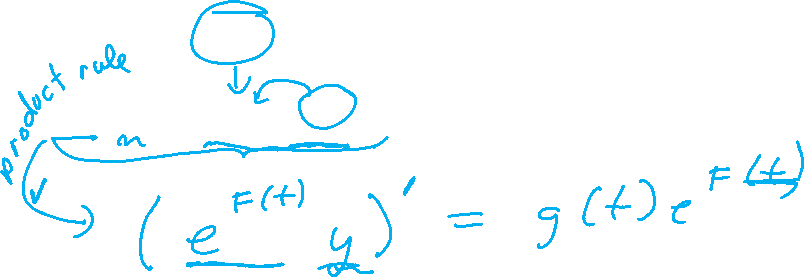 product rule
(e^{F(t)} y)' = g(t)e^{F(t)}